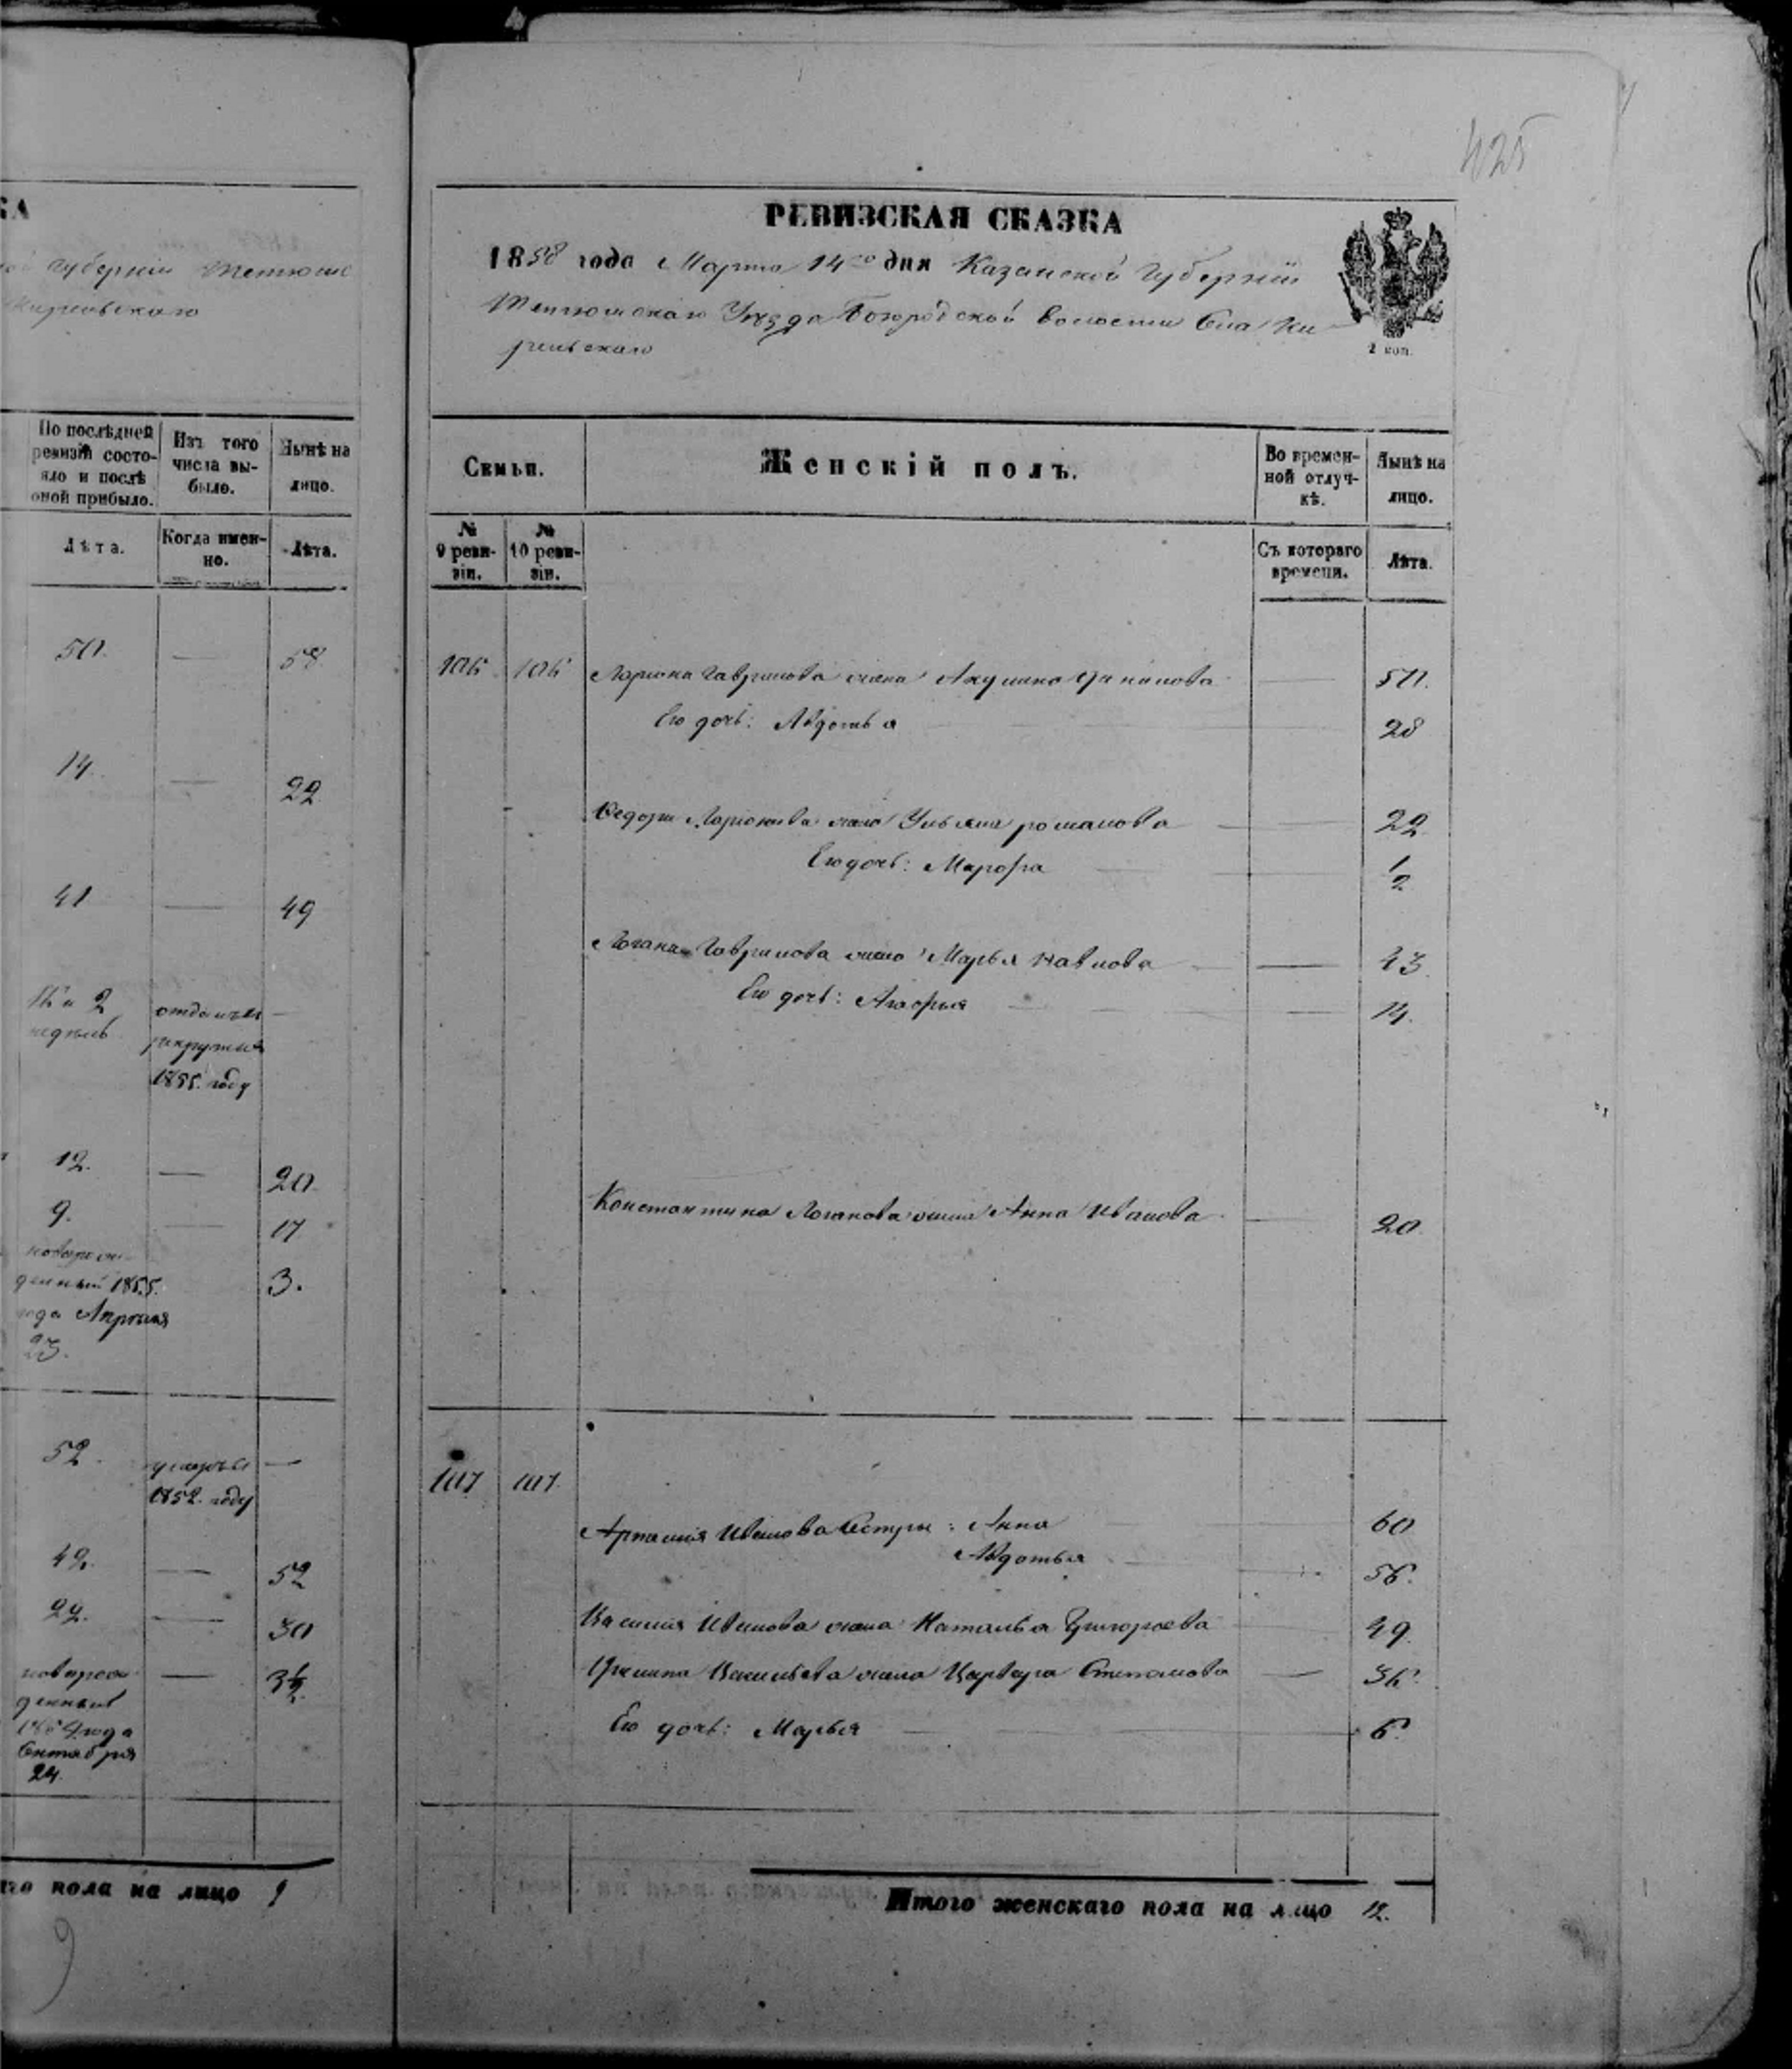 425
КА
Губернiи Тетюшс
Кирельскаго
По послѣдней ревизiи состояло и послѣ оной прибыло.
Изъ того числа выбыло.
Нынѣ на лицо.
Лѣта.
Когда именно.
Лѣта.
50. — 58.
14. — 22
41 — 49
и 2 отданъ въ —
недѣль рекруты въ
1855. году
12. — 20.
9. — 17
новорож- 3.
денный 1855.
года Апрѣля
23.
52. умеръ въ —
1852. году
— 52
22. — 30
новорож- — 3½
денный
1854 года
Сентября
24.
го пола на лицо 9
9
РЕВИЗСКАЯ СКАЗКА
1858 года Марта 14го дня Казанской Губернiи
Тетюшскаго Уѣзда Богородской волости Села Ки
рельскаго
2 коп.
Семьи.
Женскiй полъ.
Во временной отлучкѣ.
Нынѣ на лицо.
№ 9 ревизiи.
№ 10 ревизiи.
Съ котораго времени.
Лѣта.
106 106 Ларiона Гаврилова жена Акулина — 50.
Его дочь: Авдотья — 28
Федора Ларiонова жена Ульяна романова — 22
Его дочь: Марфа — ½
Логина Гаврилова жена Марья павлова — 43.
Его дочь: Агафья — 14.
Константина Логинова жена Анна Иванова — 20.
107 107
Артамия Иванова Сестры: Анна 60
Авдотья — 56.
Василия Иванова жена Наталья Григорьева 49.
Васильева жена Варвара Степанова — 36.
Его дочь: Марья — 6.
Итого женскаго пола на лицо 12.